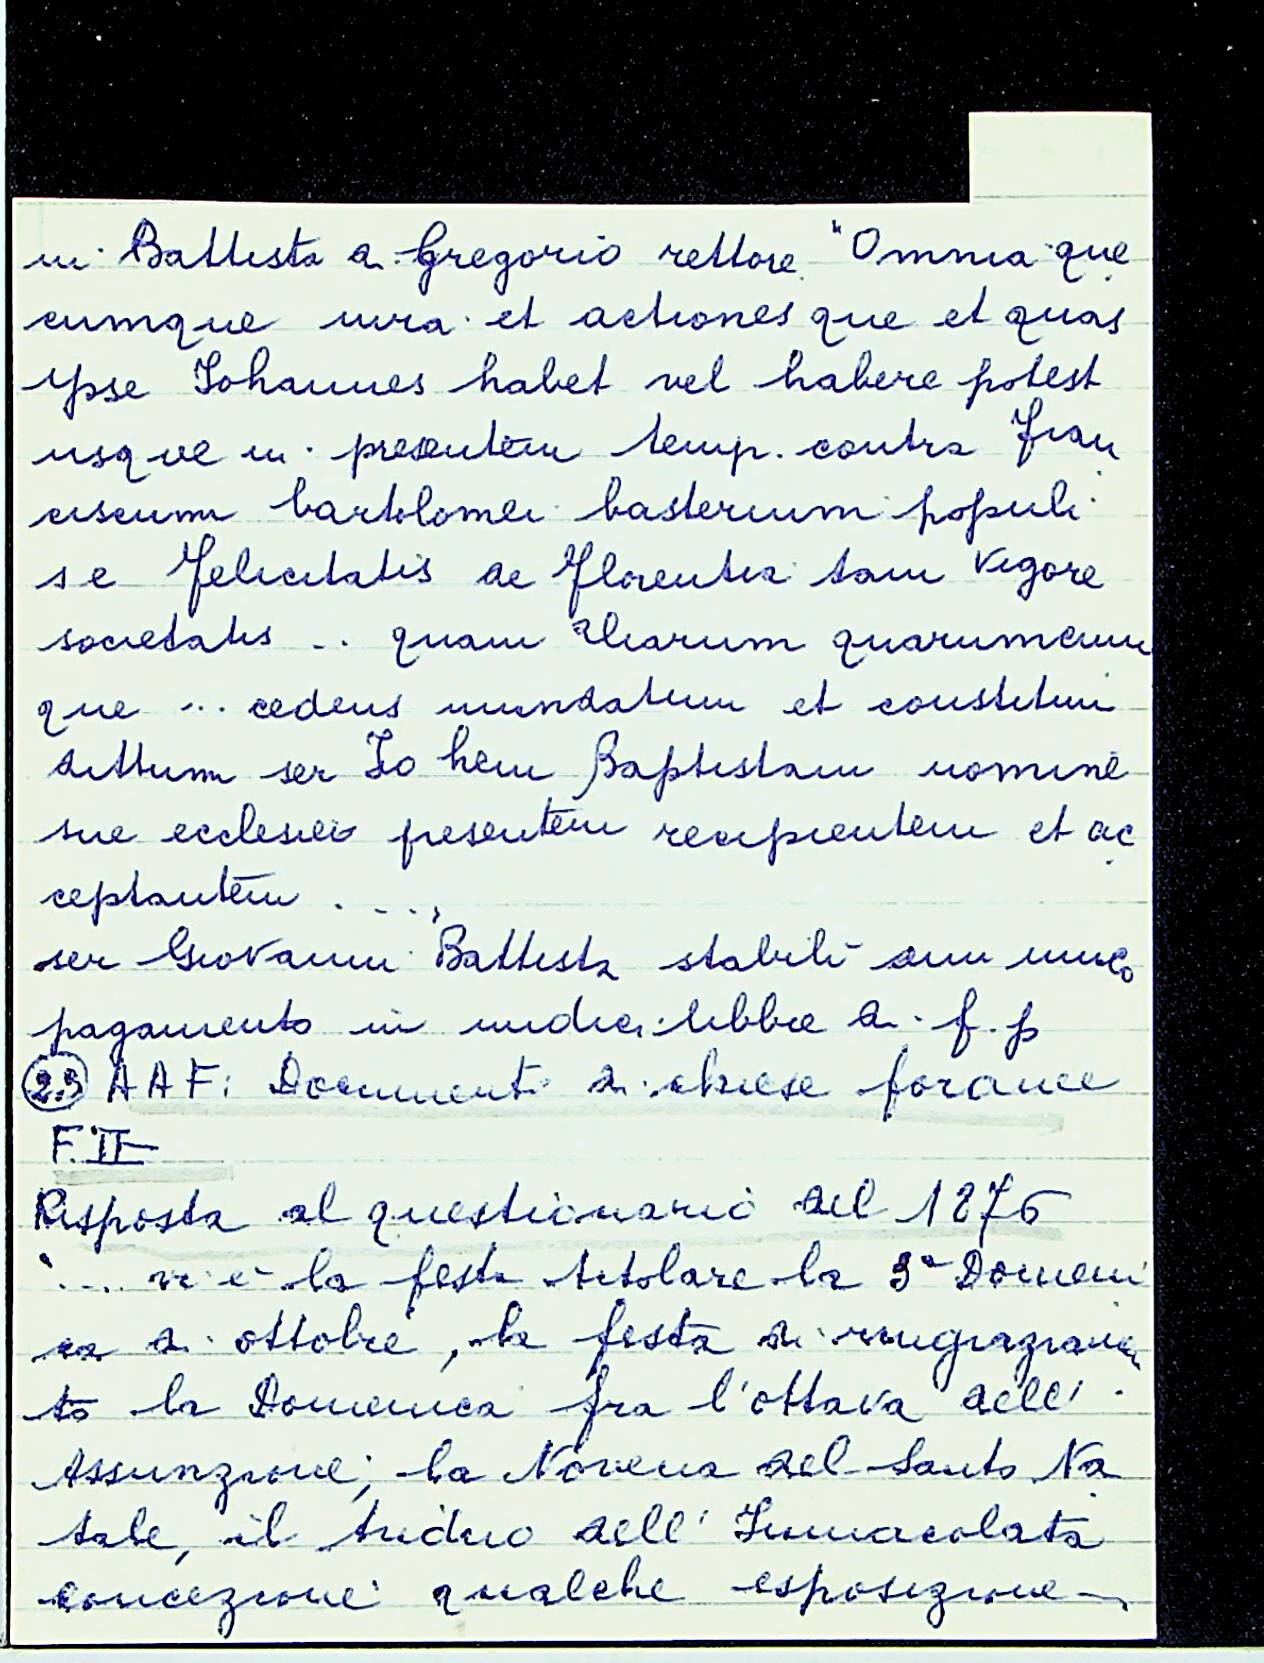 ni Battista di Gregorio rettore "Omnia que
cumque iura et actiones que et quas
ipse Iohannes habet vel habere potest
usque in presentem temp. contra Fran
ciscum bartolomei basterium populi
s e Felicitatis de Florentia tam vigore
societatis .. quam aliarum quarumcum
que ... cedens mandatum et constitui
dittum ser Io hem Baptistam nomine
sue ecclesiei presentem recipientem et ac
ceptantem . ...,
ser Giovanni Battista stabilì un unico
pagamento in undici libbre di f. p
2.9 AAF: Documenti di chiese foranee
F. II
Risposta al questionario del 1876
".... vi è la festa titolare la 3ª Domeni
ca di ottobre, la festa di ringraziamen
to la Domenica fra l'ottava dell'
Assunzione, la Novena del Santo Na
tale, il triduo dell' Immacolata
concezione qualche esposizione